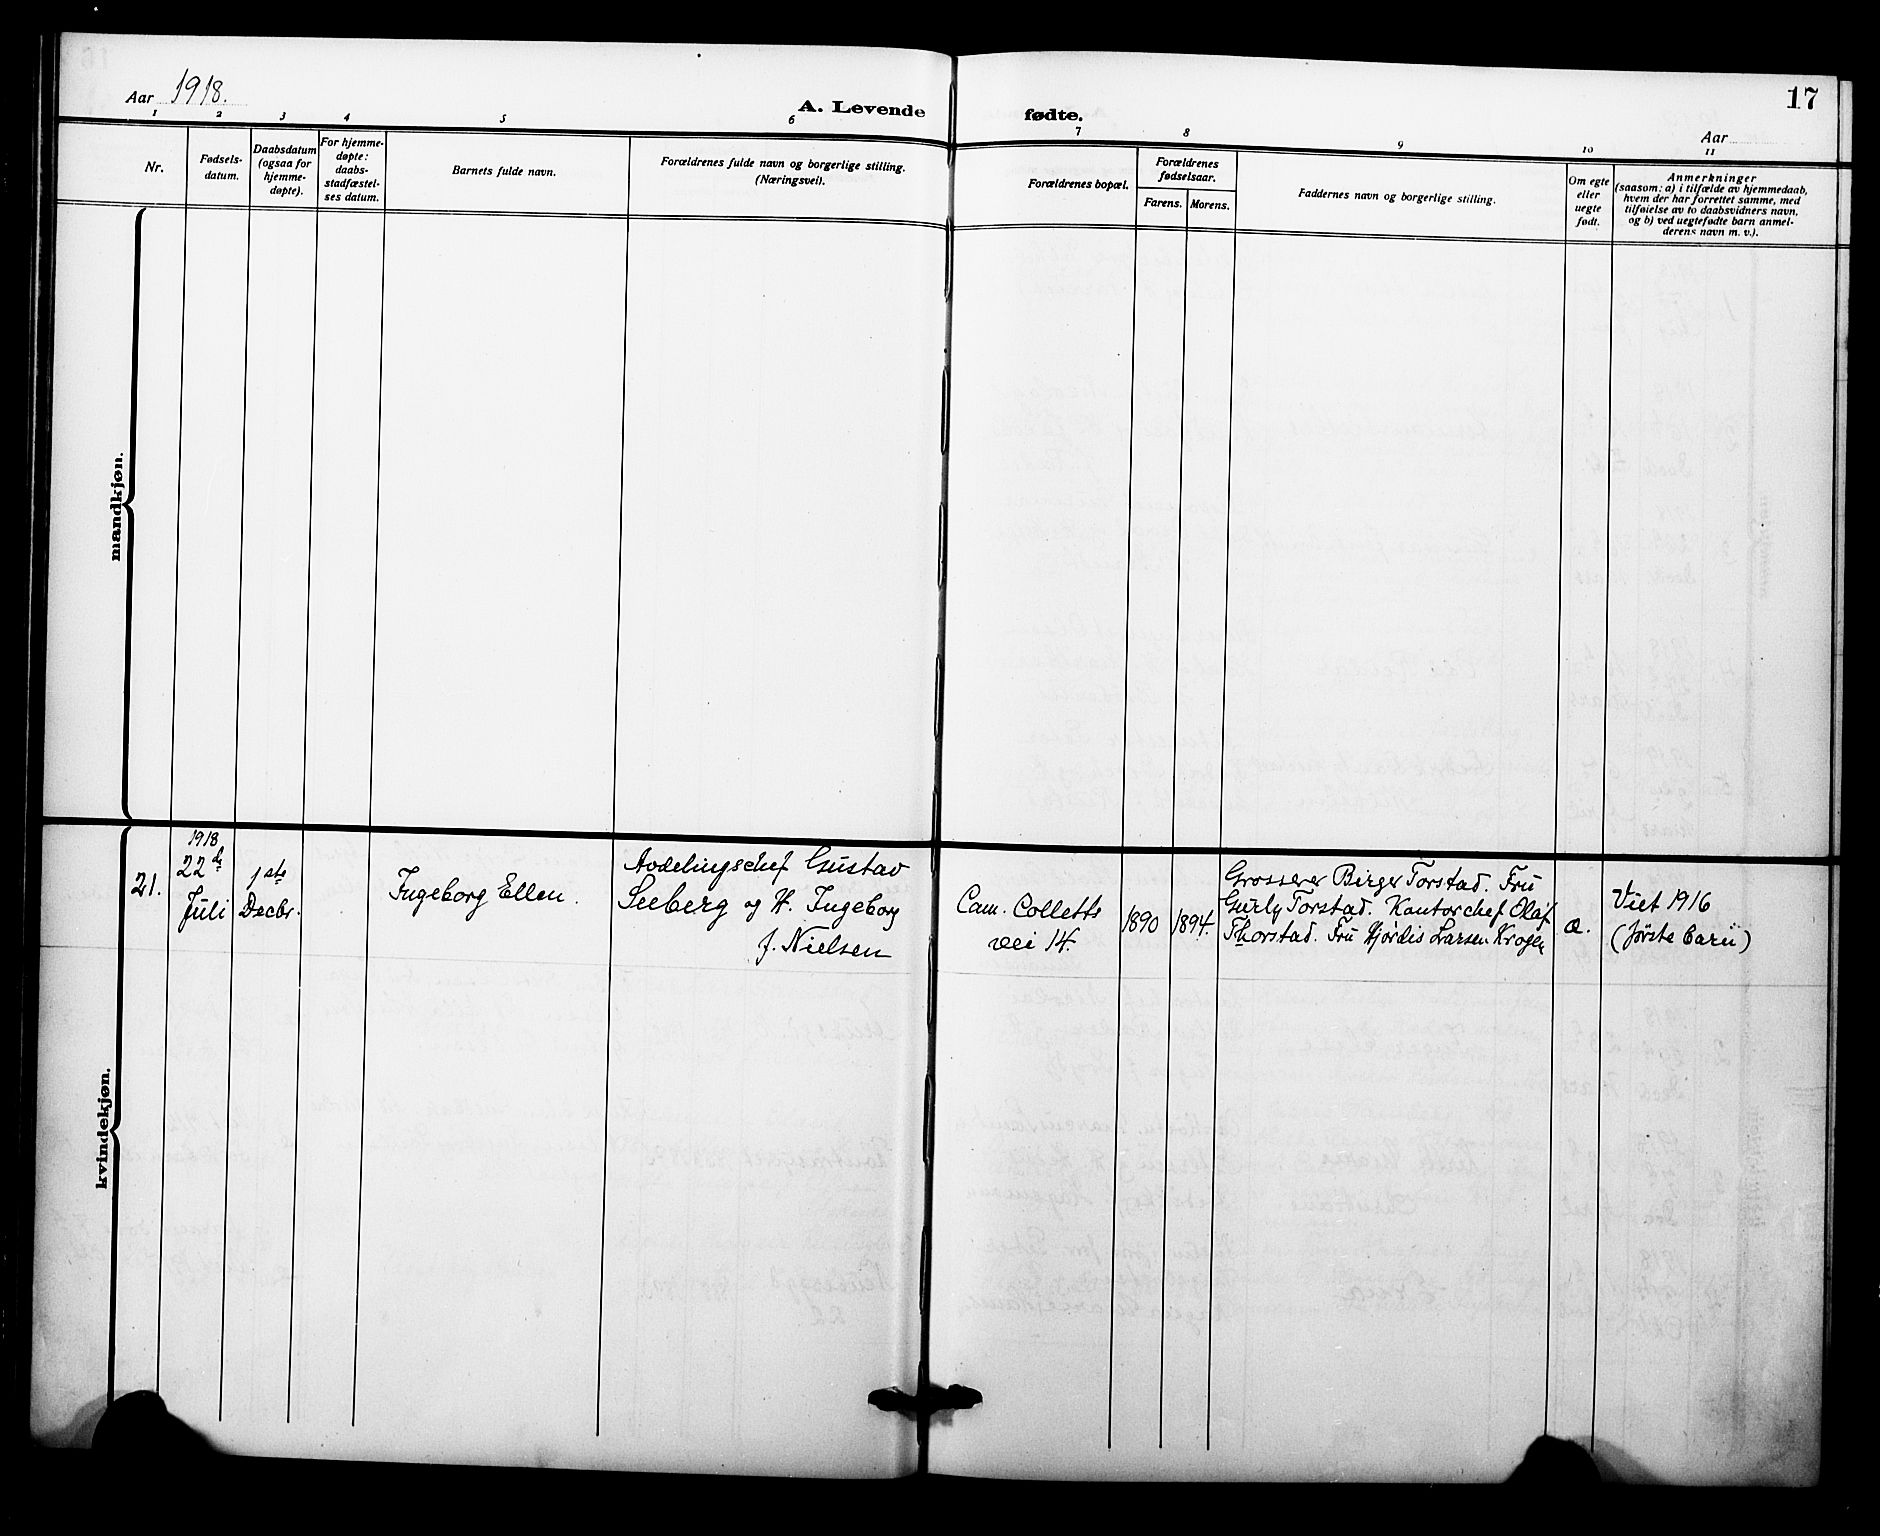 Aar 1918.
A. Levende fødte.
17
Aar
1 2 3 4 5 6 7 8 9 10 11
Nr.
Fødsels-
datum.
Daabsdatum
(ogsaa for
hjemme-
døpte).
For hjemme-
døpte:
daabs-
stadfæstel-
ses datum.
Barnets fulde navn.
Forældrenes fulde navn og borgerlige stilling.
(Næringsvei).
Forældrenes bopæl.
Forældrenes
fødselsaar.
Farens.
Morens.
Faddernes navn og borgerlige stilling.
Om egte
eller
uegte
født.
Anmerkninger
(saasom: a) i tilfælde av hjemmedaab,
hvem der har forrettet samme, med
tilføielse av to daabsvidners navn,
og b) ved uegtefødte barn anmel-
derens navn m. v.).
mandkjøn.
kvindekjøn.
21.
1918
22de
Juli
1ste
Decbr.
Ingeborg Ellen.
Avdelingschef Gustav
Seeberg og H. Ingeborg
f. Nielsen
Cam. Colletts
vei 14.
1890
1894.
Grosserer Birger Torstad. Fru
Gurly Torstad. Kontorchef Olaf
Thorstad. Fru Hjørdis Larsen Krogh
æ.
Viet 1916
(første barn)